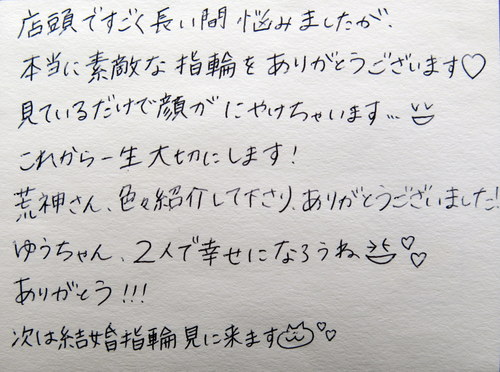 店頭ですごく長い間悩みましたが、
本当に素敵な指輪をありがとうございます♡
見ているだけで顔がにやけちゃいます…
これから一生大切にします!
荒神さん、色々紹介して下さり、ありがとうございました!
ゆうちゃん、2人で幸せになろうね♡♡
ありがとう!!!
次は結婚指輪見に来ます♡♡